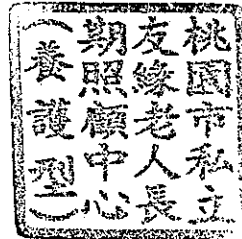 桃園市私立
友緣老人長
期照顧中心
（養護型）